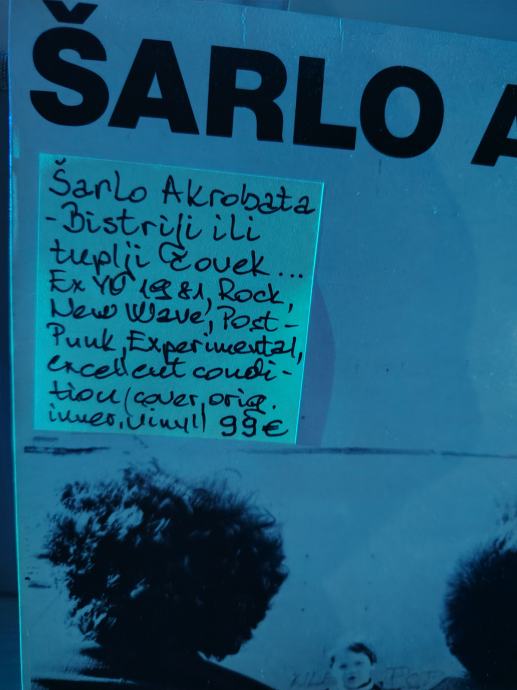 ŠARLO A
Šarlo Akrobata
- Bistriji ili
tuplji čovek...
Ex YU 1981, Rock,
New Wave, Post-
Punk, Experimental,
excellent condi-
tion (cover, orig.
inner, vinyl) 99€